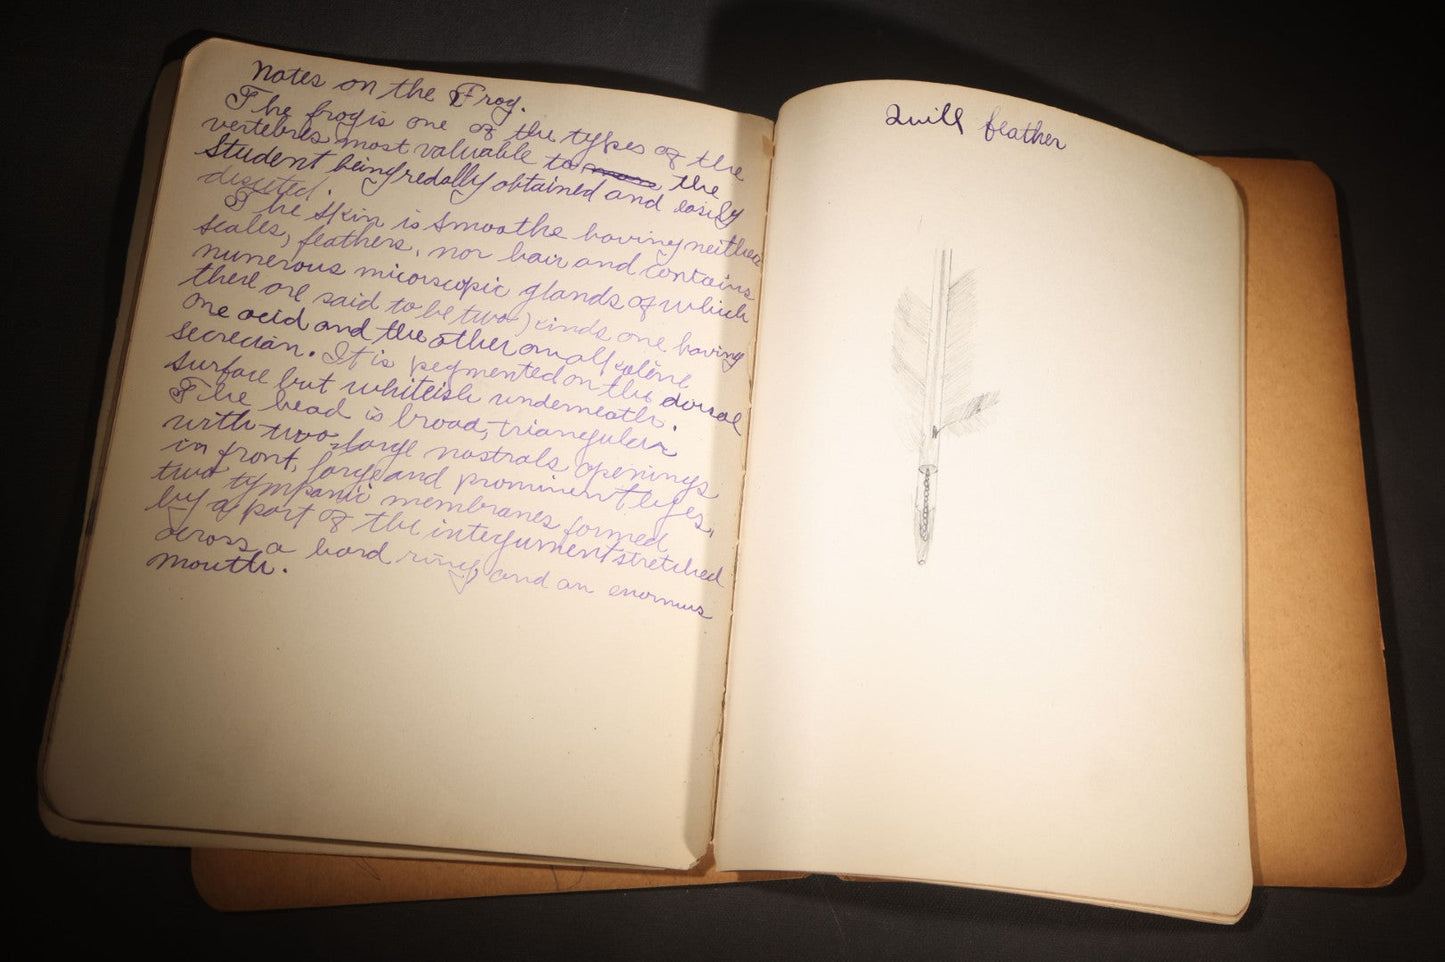 Notes on the Frog.
The frog is one of the types of the
vertebres most valuable to the
student being redally obtained and easily
The skin is smoothe having neither
scales, feathers, nor hair and contains
numerous micorscopic glands of which
there are said to be two kinds one having
one acid and the other on alkaline
secrecian. It is pegmented on the dorsal
surface but whiteish underneath.
The head is broad, triangular
with two large nostrals openings
in front, large and prominent eyes,
two tympanic membranes formed
by a part of the integument stretched
across a hard ring, and an enormus
mouth.
Quill feather